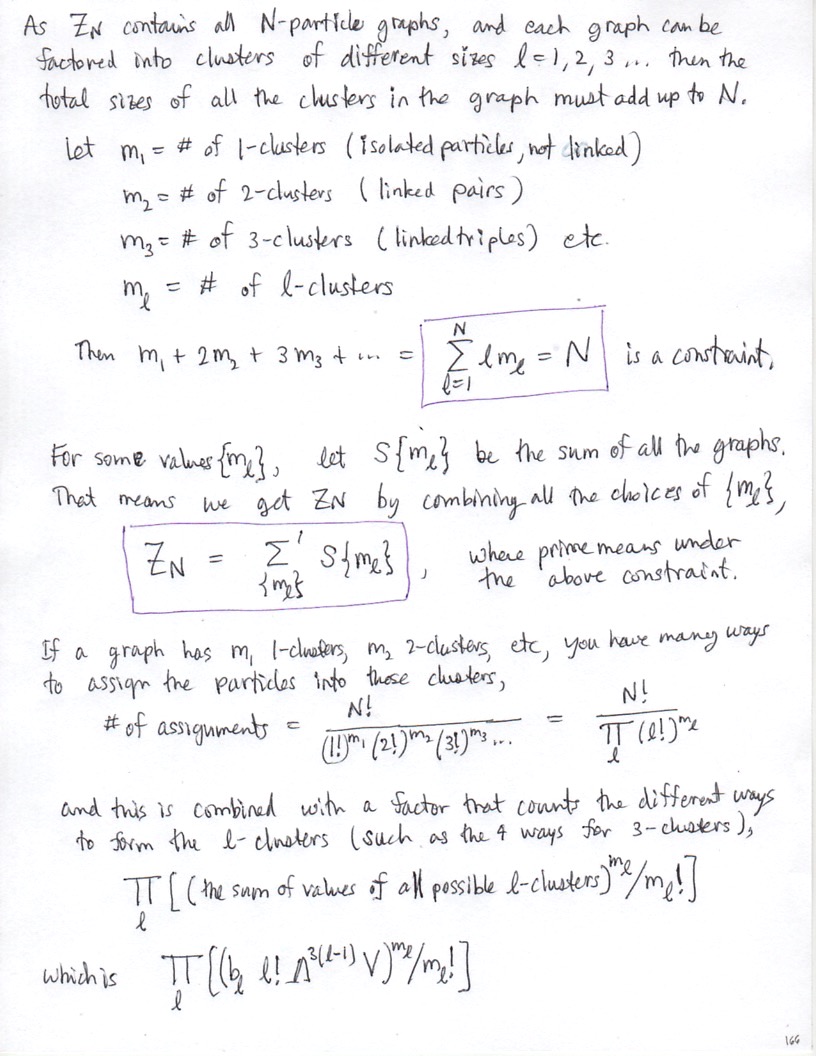 As Z_N contains all N-particle graphs, and each graph can be
factored into clusters of different sizes ℓ=1, 2, 3 ... then the
total sizes of all the clusters in the graph must add up to N.
Let m₁ = # of 1-clusters (isolated particles, not linked)
m₂ = # of 2-clusters (linked pairs)
m₃ = # of 3-clusters (linked triples) etc.
m_ℓ = # of ℓ-clusters
Then m₁ + 2m₂ + 3m₃ + ... = ∑_{ℓ=1}^{N} ℓm_ℓ = N is a constraint.
For some values {m_ℓ}, let S{m_ℓ} be the sum of all the graphs.
That means we get Z_N by combining all the choices of {m_ℓ},
Z_N = ∑'_{{m_ℓ}} S{m_ℓ}, where prime means under
the above constraint.
If a graph has m₁ 1-clusters, m₂ 2-clusters, etc, you have many ways
to assign the particles into those clusters,
# of assignments = N! / (1!)^{m₁} (2!)^{m₂} (3!)^{m₃} ... = N! / ∏_ℓ (ℓ!)^{m_ℓ}
and this is combined with a factor that counts the different ways
to form the ℓ-clusters (such as the 4 ways for 3-clusters),
∏_ℓ [(the sum of values of all possible ℓ-clusters)^{m_ℓ}/m_ℓ!]
which is ∏_ℓ [(b_ℓ ℓ! Λ^{3(ℓ-1)} V)^{m_ℓ}/m_ℓ!]
166